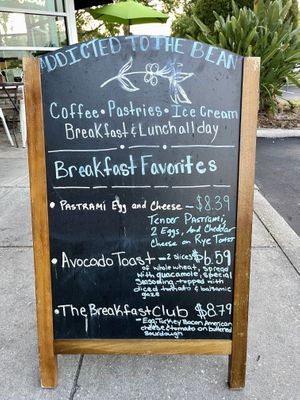 ADDICTED TO THE BEAN
Coffee • Pastries • Ice Cream
Breakfast & Lunch all day
Breakfast Favorites
• Pastrami Egg and Cheese - $8.39
Tender Pastrami,
2 Eggs, And Cheddar
Cheese on Rye Toast
• Avocado Toast - 2 slices $6.59
of whole wheat, spread
with guacamole, special
seasoning, topped with
diced tomato & balsamic
gaze
• The Breakfast Club $8.79
- Egg, Turkey Bacon, American
cheese & tomato on buttered
sourdough